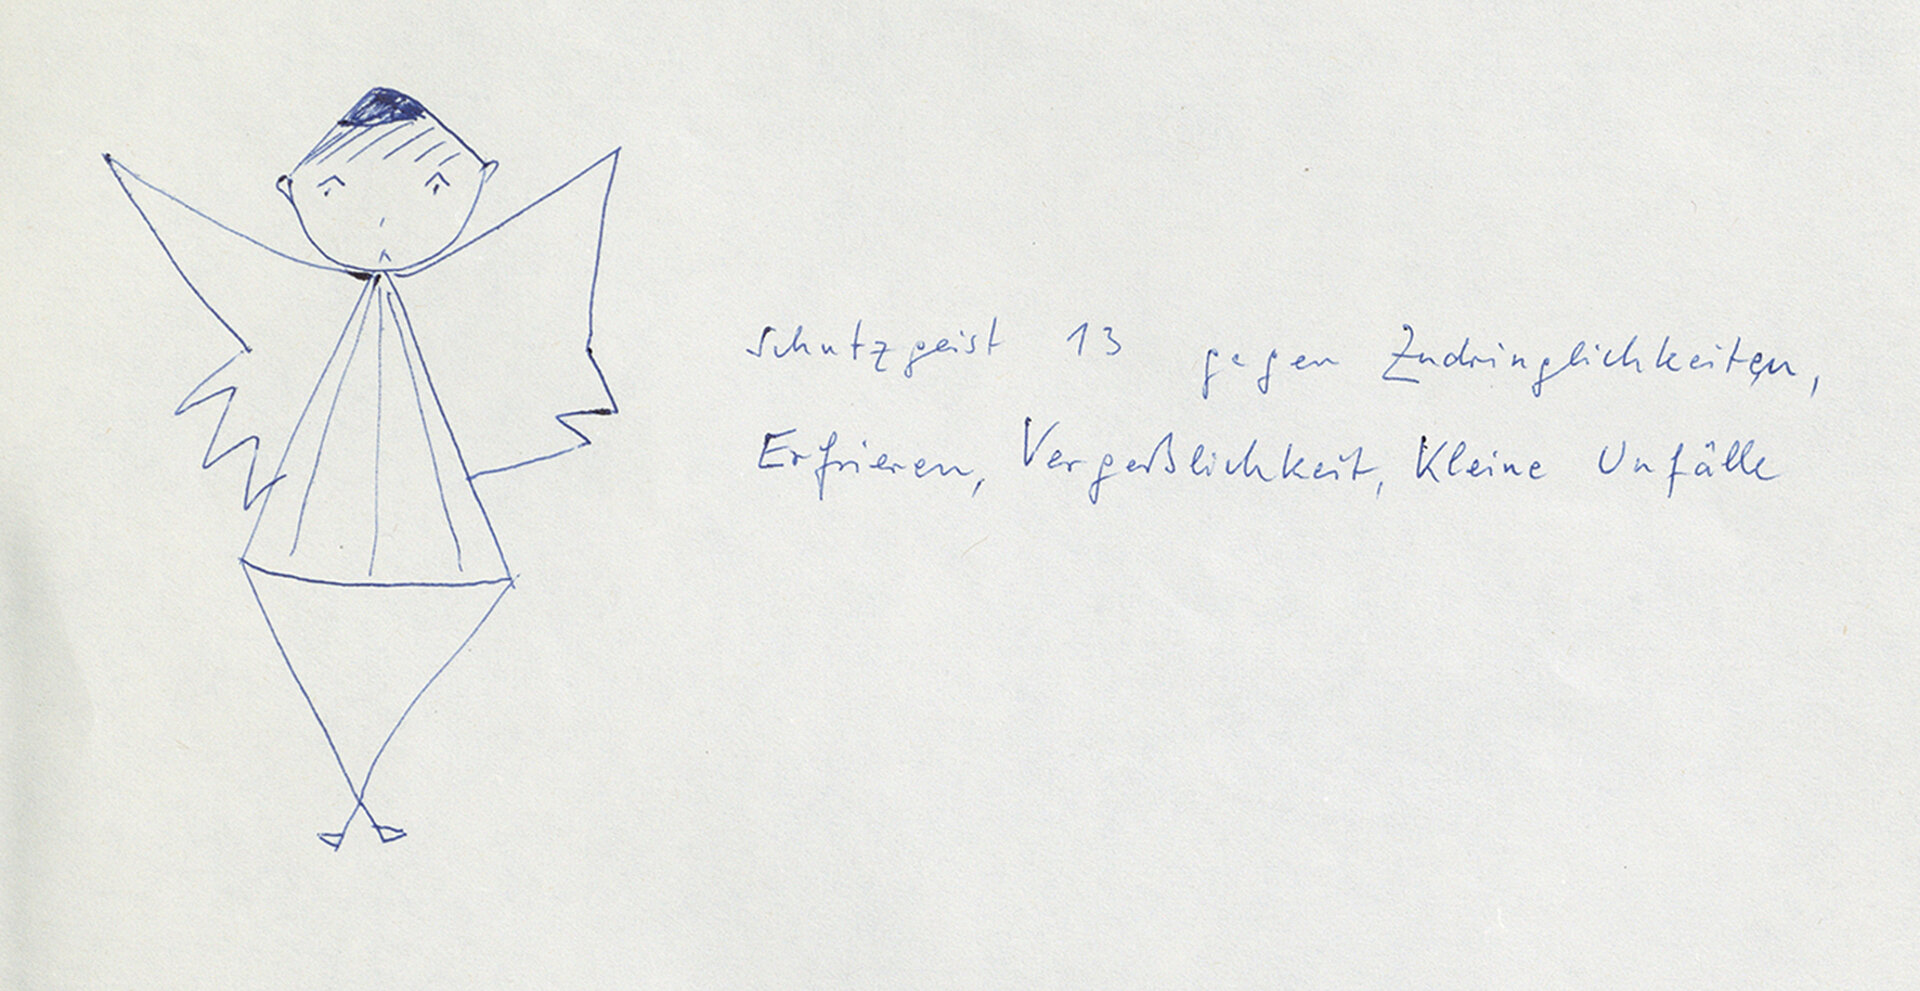 Schutzgeist 13 gegen Zudringlichkeiten,
Erfrieren, Vergeßlichkeit, Kleine Unfälle